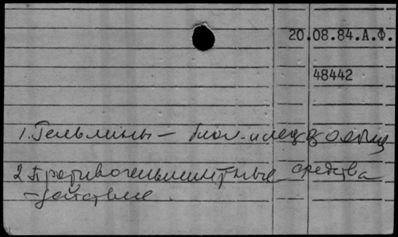 20.08.84.А.Ф.
48442
1. Гельминты —
2. Противогельминтные средства
— действие